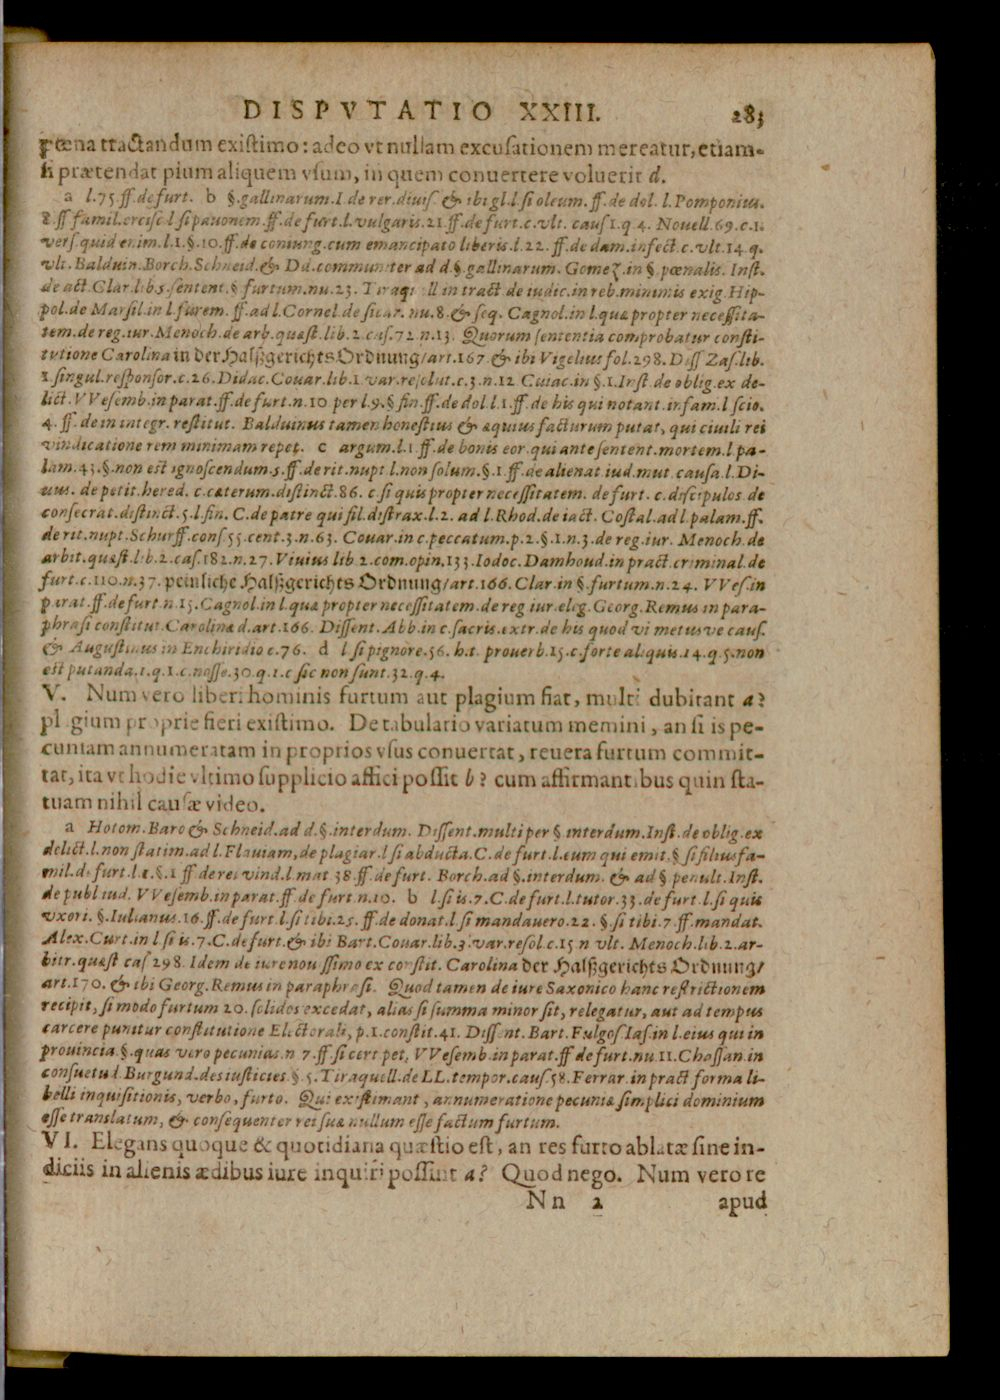 DISPVTATIO XXIII. 283
pœna tractandum existimo: adeo vt nullam excusationem mereatur, etiam-
si prætendat pium aliquem vsum, in quem conuertere voluerit d.
a l.75.ff.de furt. b §.gallinarum.I.de rer.diuis. & ibi gl.l.si oleum.ff.de dol. l.Pomponius.
8.ff famil.ercisc.l si pauonem.ff.de furt.l.vulgaris.21.ff.de furt.c.vlt. caus 1.q.4. Nouell.69.c.1.
vers.quid enim.l.1.§.10.ff.de coniung.cum emancipato liberis.l.22. ff.de dam.infect.c.vlt.14.q.
vlt. Balduin.Borch.Schneid.& Dd.communiter ad d.§.gallinarum. Gomez.in §.pœnalis. Inst.
de act.Clar.lib.5.sentent.§ furtum.nu.23. Tiraquell in tract de iudic.in reb.minimis exig.Hip-
pol.de Marsil.in l.furem. ff.ad l.Cornel.de sicar. nu.8.& seq. Cagnol.in l.quæ propter necessita-
tem.de reg.iur.Menoch.de arb.quæst.lib.2.cas.72.n.13. Quorum sententia comprobatur consti-
tutione Carolina in der HalßgerichtsOrdnung/art.167.& ibi Vigelius fol.298. Diss Zas.lib.
1.singul.responsor.c.26.Didac.Couar.lib.1.var.resolut.c.3.n.12 Cuiac.in §.1.Inst.de oblig.ex de-
lict.VVesemb.in parat.ff.de furt.n.10 per l.9.§ fin.ff.de dol.l.1.ff.de his qui notant.infam.l scio.
4.ff.de in integr.restitut. Balduinus tamen honestius & æquius facturum putat, qui ciuili rei
vindicatione rem minimam repet. c argum.l.1.ff.de bonis eor.qui ante sentent.mortem.l pa-
lam.43.§.non est ignoscendum.5.ff.de rit.nupt l.non solum.§.1.ff.de alienat iud.mut.causa.l.Di-
uus. de petit.hered. c.cæterum.distinct.86. c.si quis propter necessitatem. de furt. c.discipulos de
consecrat.distinct.5.l.fin. C.de patre qui fil.distrax.l.2. ad l.Rhod.de iact. Costal.ad l.palam.ff.
de rit.nupt.Schurff.cons.55.cent.3.n.63. Couar.in c.peccatum.p.2.§.1.n.3.de reg.iur. Menoch.de
arbit.quæst.lib.2.cas.182.n.27.Viuius lib.2.com.opin.133.Iodoc.Damhoud.in pract.criminal.de
furt.c.110.n.37.peinliche HalßgerichtsOrdnung/art.166.Clar.in §.furtum.n.24. VVes.in
parat.ff.de furt.n.15.Cagnol.in l.quæ propter necessitatem.de reg iur.eleg.Georg.Remus in para-
phrasi constitut.Carolinæ d.art.166. Dissent.Abb.in c.sacris.extr.de his quod vi metusve caus.
& Augustinus in Enchiridio c.76. d l.si pignore.56.h.t. prouerb.15.c.forte aliquis.14.q.5.non
est putanda.1.q.1.c.nosse.30.q.1.c sic non sunt.32.q.4.
V. Num vero liberi hominis furtum aut plagium fiat, multi dubitant a?
plagium proprie fieri existimo. De tabulario variatum memini, an si is pe-
cuniam annumeratam in proprios vsus conuertat, reuera furtum commit-
tat, ita vt hodie vltimo supplicio affici possit b? cum affirmantibus quin sta-
tuam nihil causæ video.
a Hotom.Baro & Schneid.ad d.§.interdum. Dissent.multi per § interdum.Inst.de oblig.ex
delict.l.non statim.ad l.Flauiam, de plagiar.l si abducta.C.de furt.l.eum qui emit.§ si filiusfa-
mil.de furt.l.1.§.1 ff de rei vind.l mat 38.ff.de furt. Borch.ad §.interdum. & ad § penult.Inst.
de publ iud. VVesemb.in parat.ff de furt.n.10. b l.si is.7.C.de furt.l.tutor.33.de furt.l.si quis
vxori. §.Iulianus.16.ff.de furt.l.si tibi.25. ff.de donat.l si mandauero.22. §.si tibi.7.ff.mandat.
Alex.Curt.in l si is.7.C.de furt.& ibi Bart.Couar.lib.3.var.resol.c.15 n vlt. Menoch.lib.2.ar-
bitr.quæst cas 298. Idem de iure nouissimo ex constit. Carolina der HalßgerichtsOrdnung/
art.170. & ibi Georg.Remus in paraphrasi. Quod tamen de iure Saxonico hanc restrictionem
recipit, si modo furtum 20. solidos excedat, alias si summa minor sit, relegatur, aut ad tempus
carcere punitur constitutione Electorali, p.1.constit.41. Dissent. Bart.Fulgos.Ias.in l.eius qui in
prouincia.§.quas vero pecunias.n 7.ff.si cert pet, VVesemb.in parat.ff de furt.nu.11.Chassan.in
consuetud.Burgund.des iusticies.§.5.Tiraquell.de LL.tempor.caus.58.Ferrar.in pract forma li-
belli inquisitionis, verbo, furto. Qui existimant, annumeratione pecuniæ simplici dominium
esse translatum, & consequenter rei suæ nullum esse factum furtum.
VI. Elegans quoque & quotidiana quæstio est, an res furto ablatæ sine in-
diciis in alienis ædibus iure inquiri possint a? Quod nego. Num vero re
Nn 2 apud